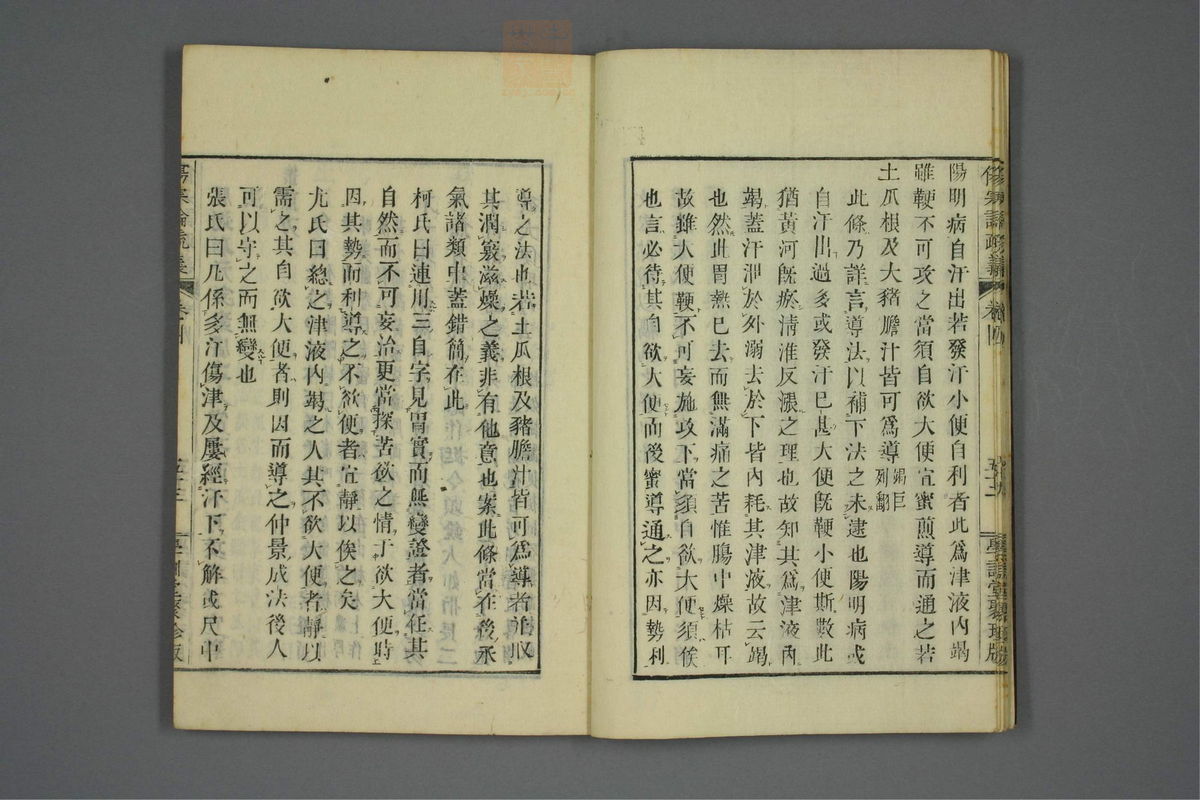 陽明病自汗出若發汗小便自利者此爲津液內竭
雖鞕不可攻之當須自欲大便宜蜜煎導而通之若
土瓜根及大豬膽汁皆可爲導
此條乃詳言導法以補下法之未逮也陽明病或
自汗出過多或發汗已甚大便旣鞕小便斯數此
猶黃河旣瘀淸淮反漲之理也故知其爲津液內
竭蓋汗泄於外溺去於下皆內耗其津液故云竭
也然此胃熱已去而無滿痛之苦惟腸中燥枯耳
故雖大便鞕不可妄施攻下當須自欲大便須候
也言必待其自欲大便而後蜜導通之亦因勢利
導之法也若土瓜根及豬膽汁皆可爲導者前收
其潤竅滋燥之義非有他意也案此條當在後承
氣諸類中蓋錯簡在此
柯氏曰連用三自字見胃實而無變證者當任其
自然而不可妄治更當探苦欲之情于欲大便時
因其勢而利導之不欲便者宜靜以俟之矣
尤氏曰總之津液內竭之人其不欲大便者靜以
需之其自欲大便者則因而導之仲景成法後人
可以守之而無變也
張氏曰凡係多汗傷津及屢經汗下不解或尺中
卷四